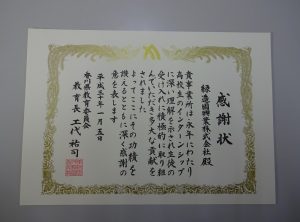 感謝状
緑造園興業株式会社殿
貴事業所は、永年にわたり
高校生のインターンシップ
に深い理解を示され生徒の
受け入れに積極的に取り組
んでいただき多大な貢献を
されました
よってここにその功績を
讃えるとともに深く感謝の
意を表します
平成三十年一月五日
香川県教育委員会
教育長 工代祐司